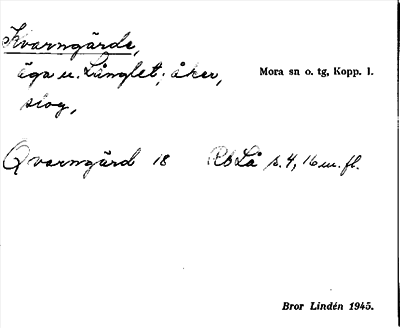 Kvarngärde,
äga u. Långlet; åker,
slog,
Mora sn o. tg, Kopp. l.
Qvarngärd 18 RbLå s. 4, 16 m. fl.
Bror Lindén 1945.